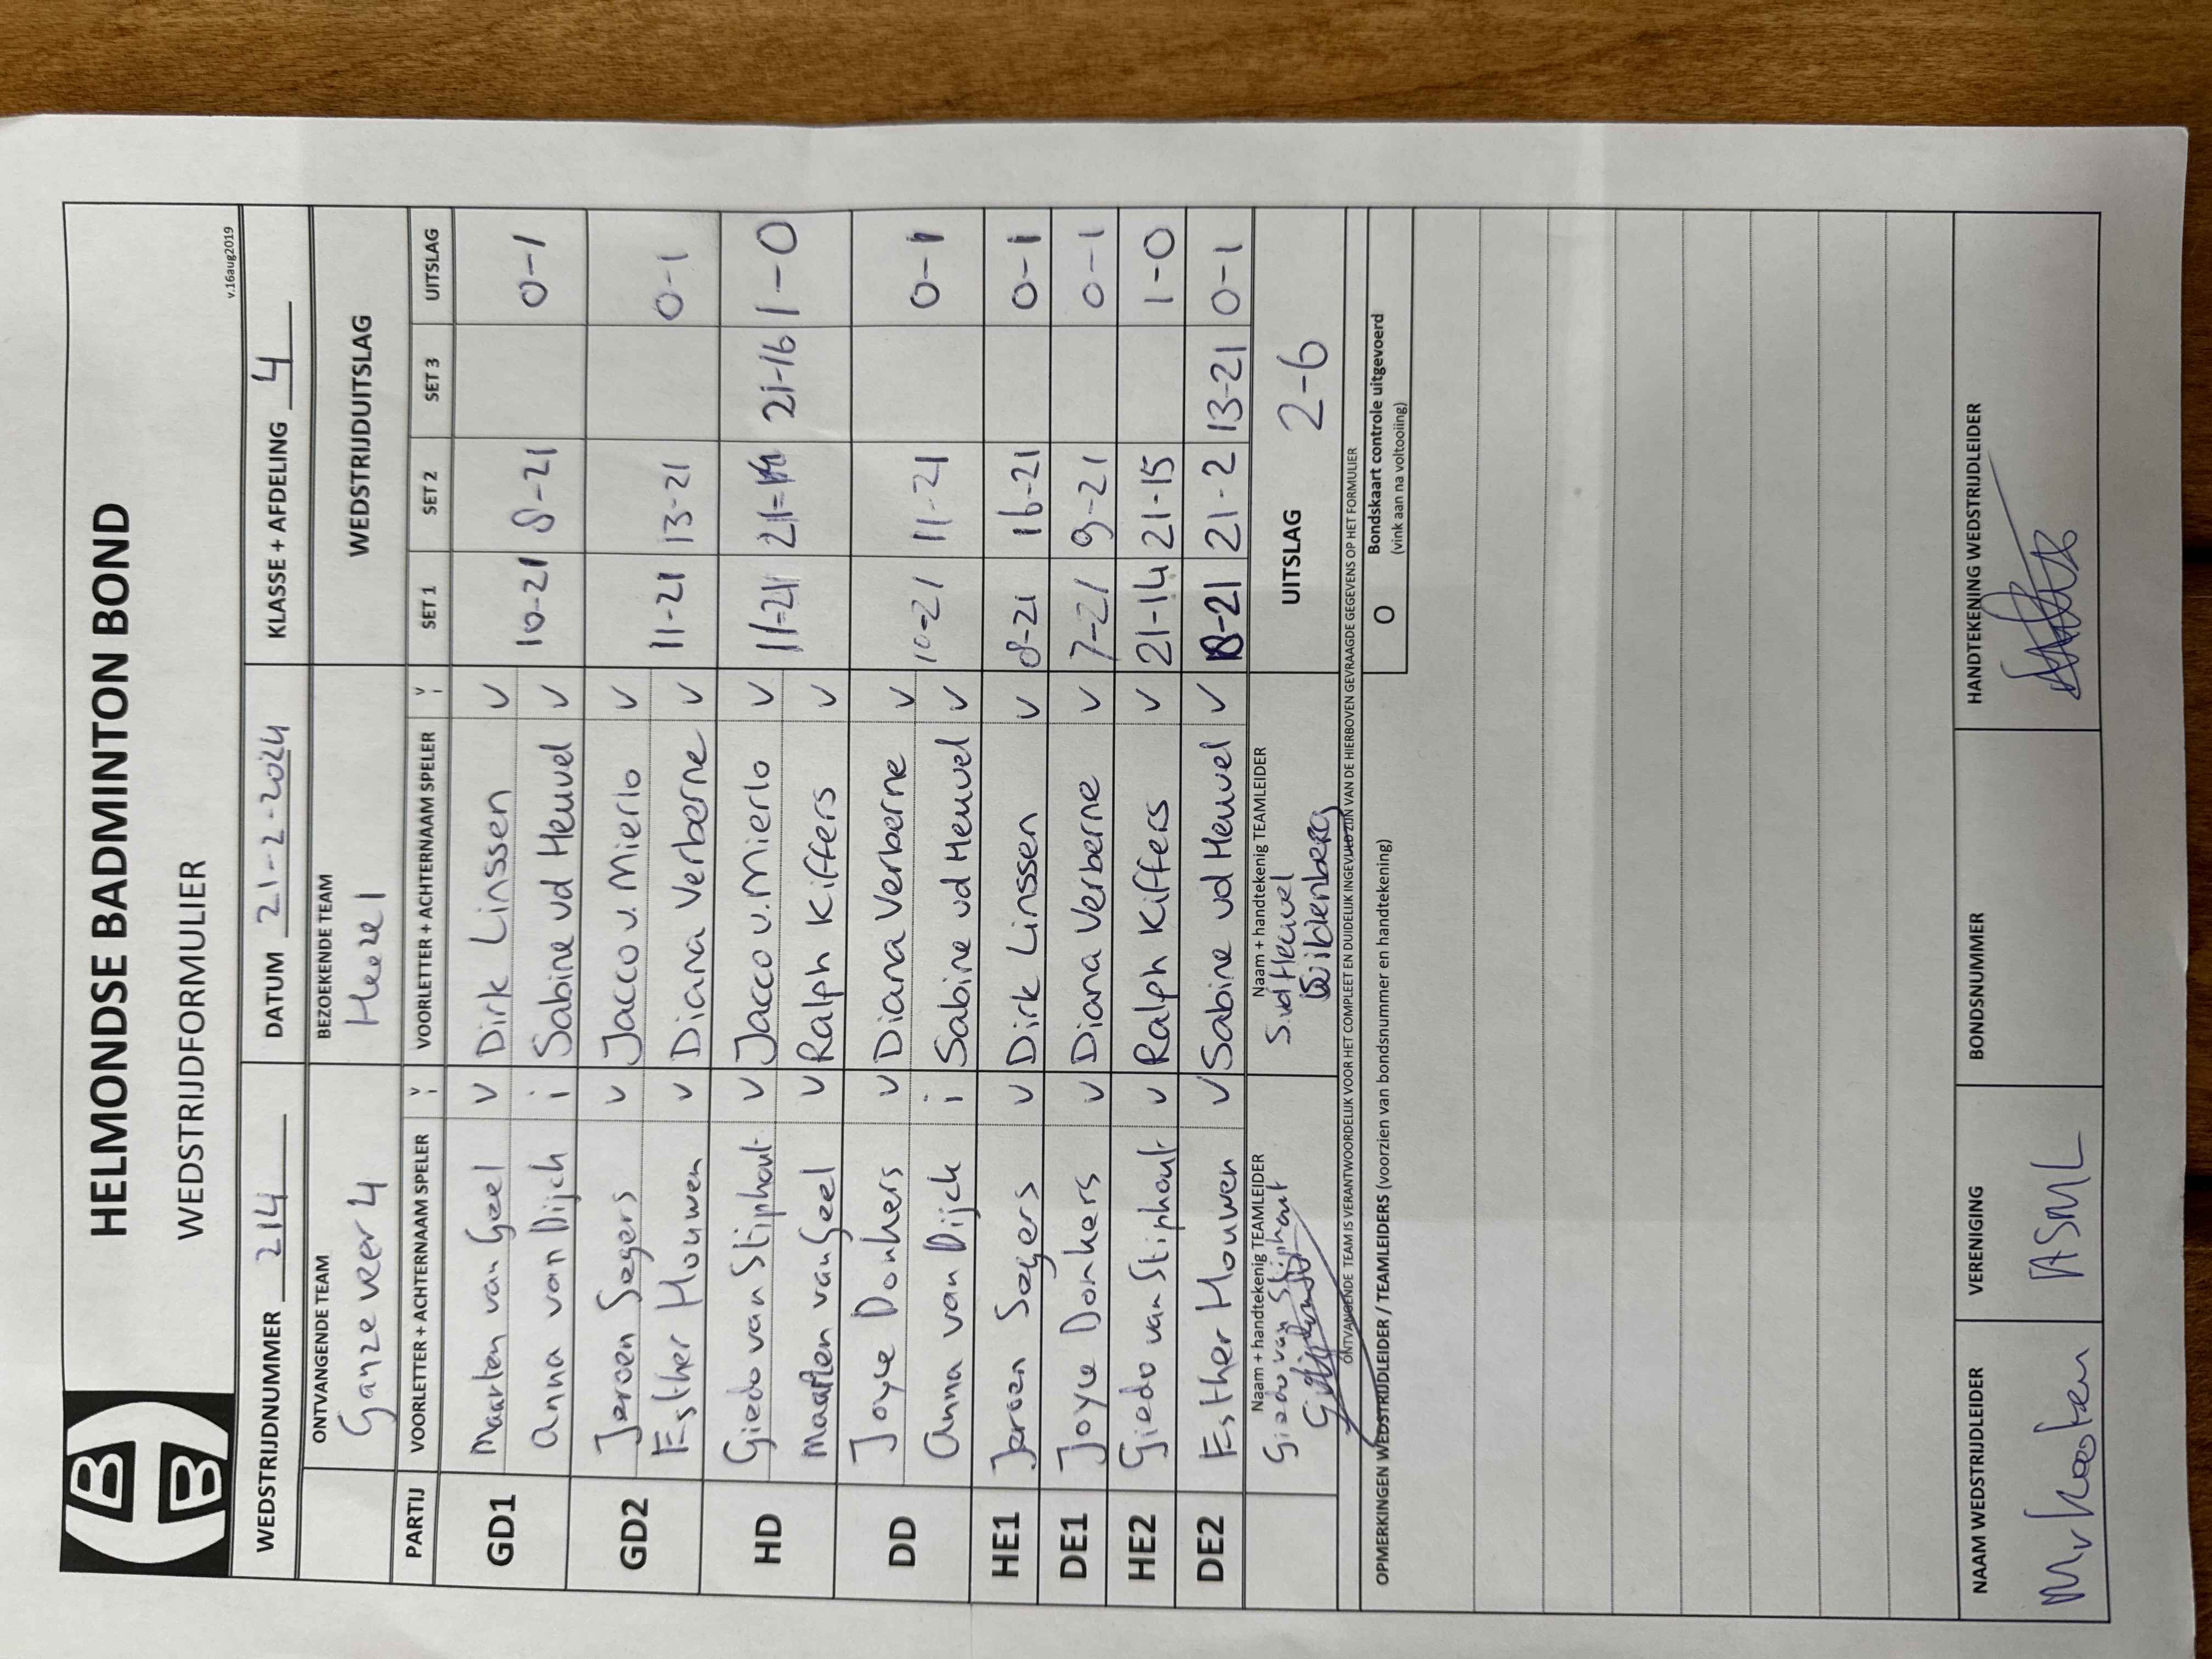 HELMONDSE BADMINTON BOND
WEDSTRIJDFORMULIER
v.16aug2019
WEDSTRIJDNUMMER 214 DATUM 21-2-2024 KLASSE + AFDELING 4
ONTVANGENDE TEAM BEZOEKENDE TEAM WEDSTRIJDUITSLAG
Ganzeveer 4 Heeze 1
PARTIJ VOORLETTER + ACHTERNAAM SPELER v i VOORLETTER + ACHTERNAAM SPELER v i SET 1 SET 2 SET 3 UITSLAG
GD1 Maarten van Geel v Dirk Linssen v
Anna van Dijck i Sabine vd Heuvel v 10-21 8-21 0-1
GD2 Jeroen Segers v Jacco v. Mierlo v
Esther Houwen v Diana Verberne v 11-21 13-21 0-1
HD Giedo van Stiphout v Jacco v. Mierlo v 11-21 21- 21-16 1-0
Maarten van Geel v Ralph Kiffers v
DD Joyce Donkers v Diana Verberne v
Anna van Dijck i Sabine vd Heuvel v 10-21 11-21 0-1
HE1 Jeroen Segers v Dirk Linssen v 8-21 16-21 0-1
DE1 Joyce Donkers v Diana Verberne v 7-21 9-21 0-1
HE2 Giedo van Stiphout v Ralph Kiffers v 21-14 21-15 1-0
DE2 Esther Houwen v Sabine vd Heuvel v 18-21 21-2 13-21 0-1
Naam + handtekenig TEAMLEIDER Naam + handtekenig TEAMLEIDER UITSLAG 2-6
Giedo van Stiphout S.vd Heuvel
ONTVANGENDE TEAM IS VERANTWOORDELIJK VOOR HET COMPLEET EN DUIDELIJK INGEVULD ZIJN VAN DE HIERBOVEN GEVRAAGDE GEGEVENS OP HET FORMULIER
OPMERKINGEN WEDSTRIJDLEIDER / TEAMLEIDERS (voorzien van bondsnummer en handtekening) O Bondskaart controle uitgevoerd
(vink aan na voltooiing)
NAAM WEDSTRIJDLEIDER VERENIGING BONDSNUMMER HANDTEKENING WEDSTRIJDLEIDER
ASML